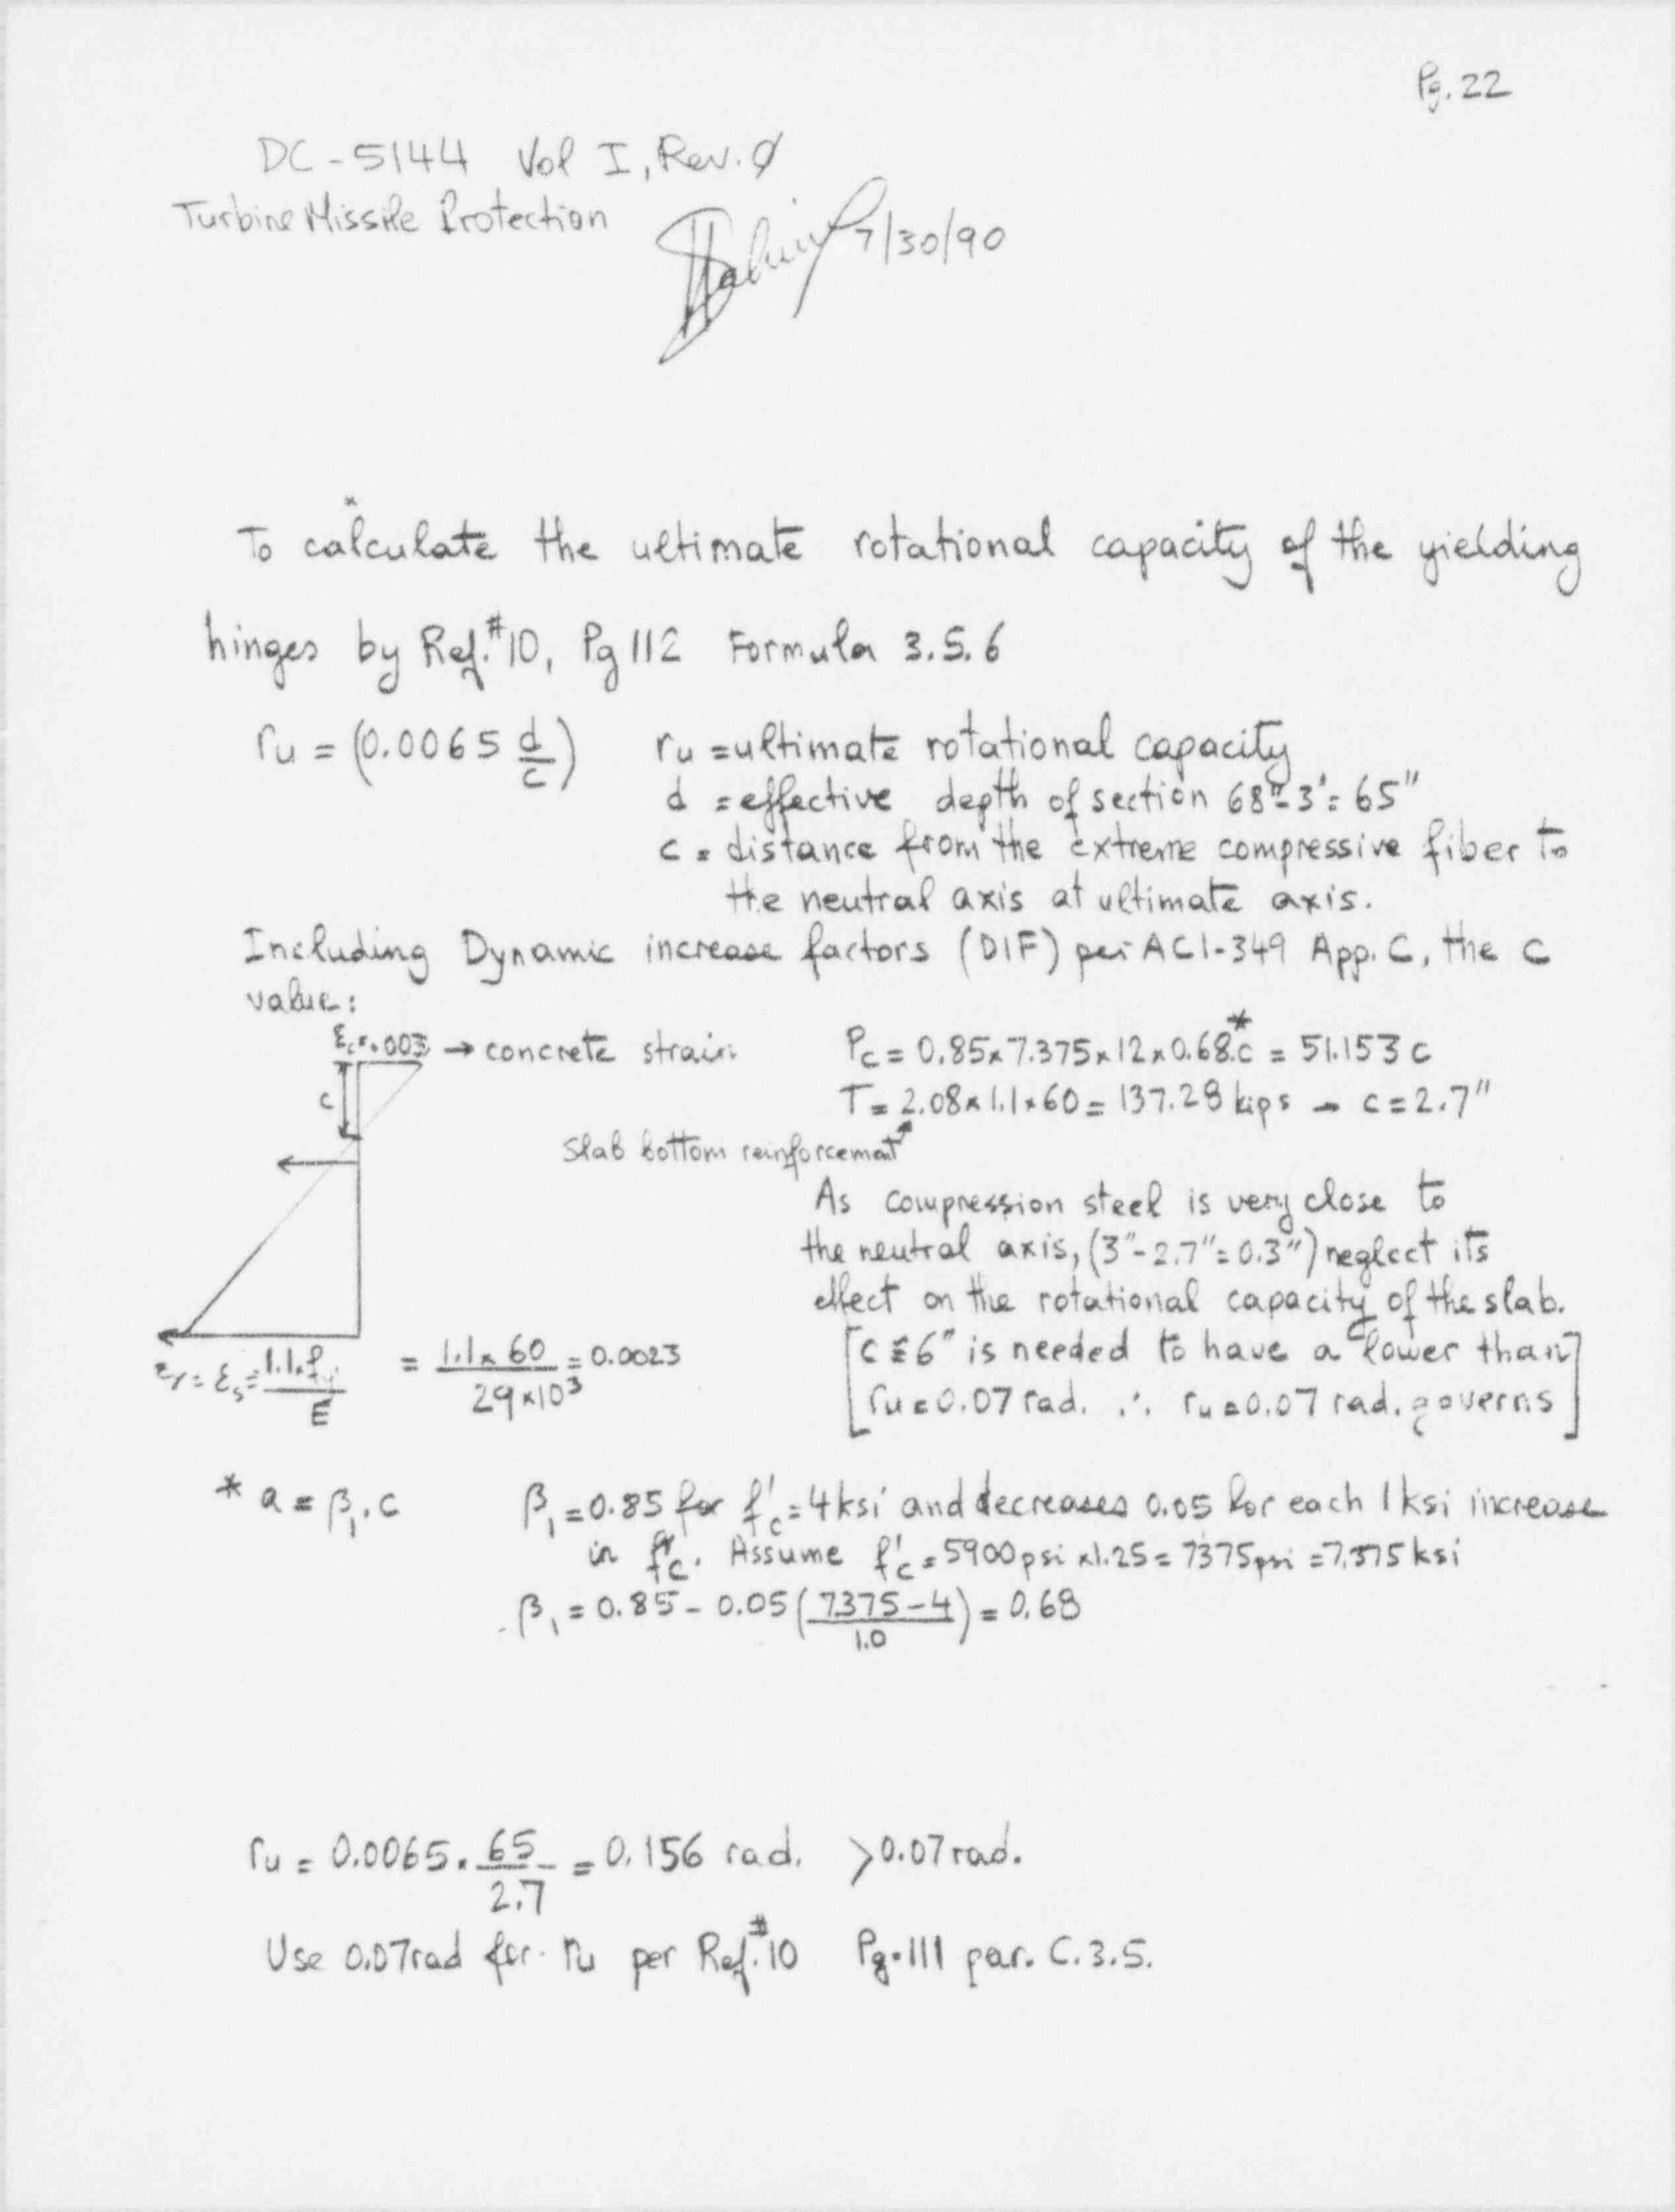 Pg. 22
DC-5144 Vol I, Rev. Ø
Turbine Missile Protection
7/30/90
To calculate the ultimate rotational capacity of the yielding
hinges by Ref.#10, Pg 112 Formula 3.5.6
ru = (0.0065 d/c) ru = ultimate rotational capacity
d = effective depth of section 68"-3' = 65"
c = distance from the extreme compressive fiber to
the neutral axis at ultimate axis.
Including Dynamic increase factors (DIF) per ACI-349 App. C, the C
value:
εc=.003 → concrete strain Pc = 0.85x7.375x12x0.68.c* = 51.153 c
c T = 2.08x1.1x60 = 137.28 kips → c = 2.7"
Slab bottom reinforcement
As compression steel is very close to
the neutral axis, (3"-2.7"=0.3") neglect its
effect on the rotational capacity of the slab.
[c ≅ 6" is needed to have a lower than
ru = 0.07 rad. ∴ ru = 0.07 rad. governs]
εy = εs = 1.1.fy/E = 1.1x60/29x10³ = 0.0023
* a = β1.c β1 = 0.85 for f'c = 4 ksi and decreases 0.05 for each 1 ksi increase
in f'c. Assume f'c = 5900 psi x1.25 = 7375 psi = 7.375 ksi
β1 = 0.85 - 0.05 (7.375-4/1.0) = 0.68
ru = 0.0065 . 65/2.7 = 0.156 rad. >0.07 rad.
Use 0.07rad for ru per Ref.#10 Pg.111 par. C.3.5.